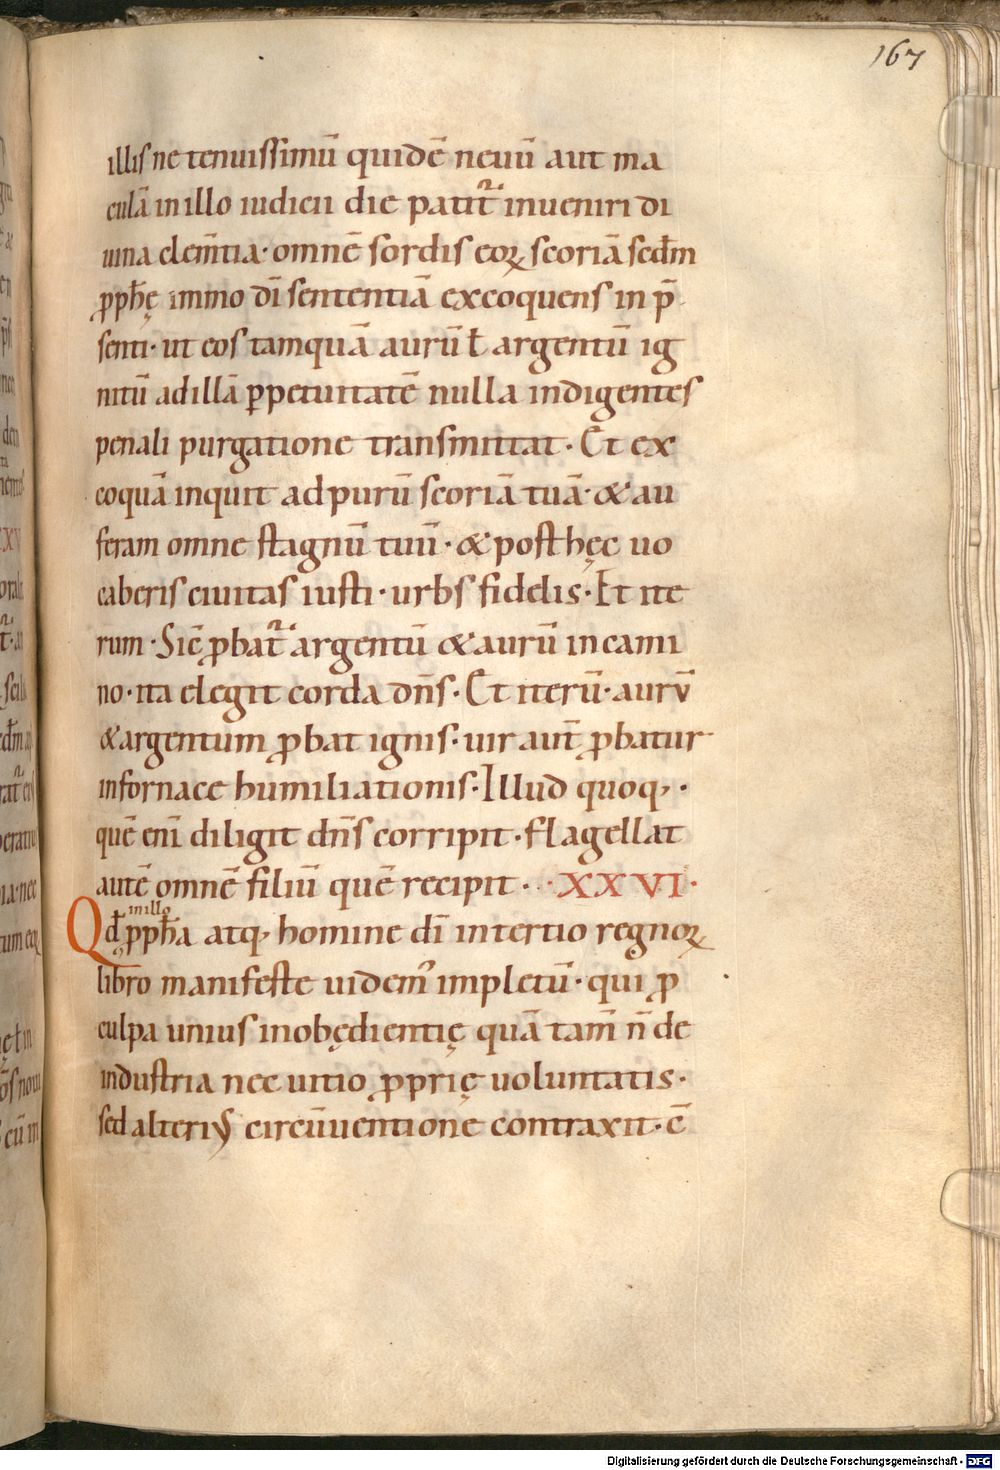 167
illis ne tenuissimū quidē nęuū aut ma
culā in illo iudicii die patit᷑ inueniri di
uina clem̄tia· omnē sordis eoꝝ scoriā scd̄m
ꝓph̄ę immo dī sententiā excoquens in p̄
senti· ut eos tamquā aurū ł argentū ig
nitū ad illā ꝑpetuitatē nulla indigentes
penali purgatione transmittat· Et ex
coquā inquit ad purū scoriā tuā· & au
feram omne stagnū tuū· & post hęc uo
caberis ciuitas iusti· urbs fidelis· Et ite
rum· Sic ꝓbat᷑ argentū & aurū in cami
no· ita elegit corda dn̄s· Et iterū· aurū
& argentum ꝓbat ignis· uir aut̄ ꝓbatur
in fornace humiliationis· Illud quoq,·
quē eni diligit dn̄s corripit· flagellat
autē omnē filiū quē recipit· XXVI·
in illo
Qđ ꝓph̄a atq, homine dī in tertio regnoꝝ
libro manifeste uidem᷒ impletū· qui ꝓ
culpa unius inobędientię quā tam̄ n̄ de
industria nec uitio ꝓprię uoluntatis·
sed alteri᷒ circūuentione contraxit· c̄
Digitalisierung gefördert durch die Deutsche Forschungsgemeinschaft - DFG